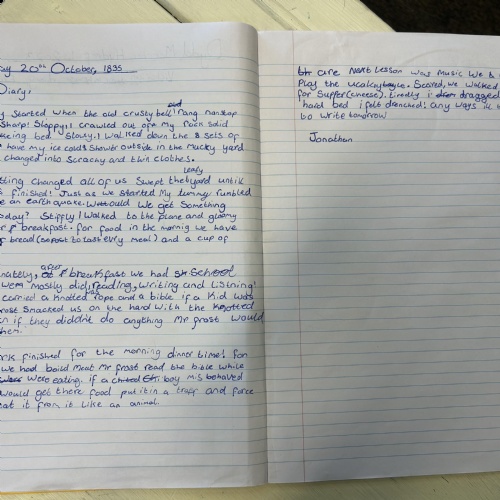 ay 20th October, 1835
Diary,
y started when the old crusty bell rang nonstop
sharp! Sloppy I crawld out off my rock solid
bed. Slowly! I walked down the 3 sets of
have my ice cold shower outside in the mucky yard
changed into scrachy and thin clothes.
leafy
ting changed all of us swept the yard untill
finished! Just as we started My tummy rumbled
e an earthquake. would we get something
oday? Stiffly I walked to the plane and gloomy
r breakfast. for food in the mornig we have
bread (to last evry meal) and a cup of
nately, after breakfast we had School
were mostly did reading, writing and Listning!
carried a knotted rope and a bible if a Kid was
rost smacked us on the hand with the knotted
n if they diddn't do anything Mr frost would
hem.
rk finished for the morning dinner time! for
we had boild meat Mr frost read the bible while
were eating. if a boy misbehaved
would get there food put it in a and force
eat it from it like an animal.
are Next Lesson was Music We
Play the Scared, we walked
for Supper (cheese). tiredly i dragged
hard bed i felt drenched! any ways
to write tomorrow
Jonathan